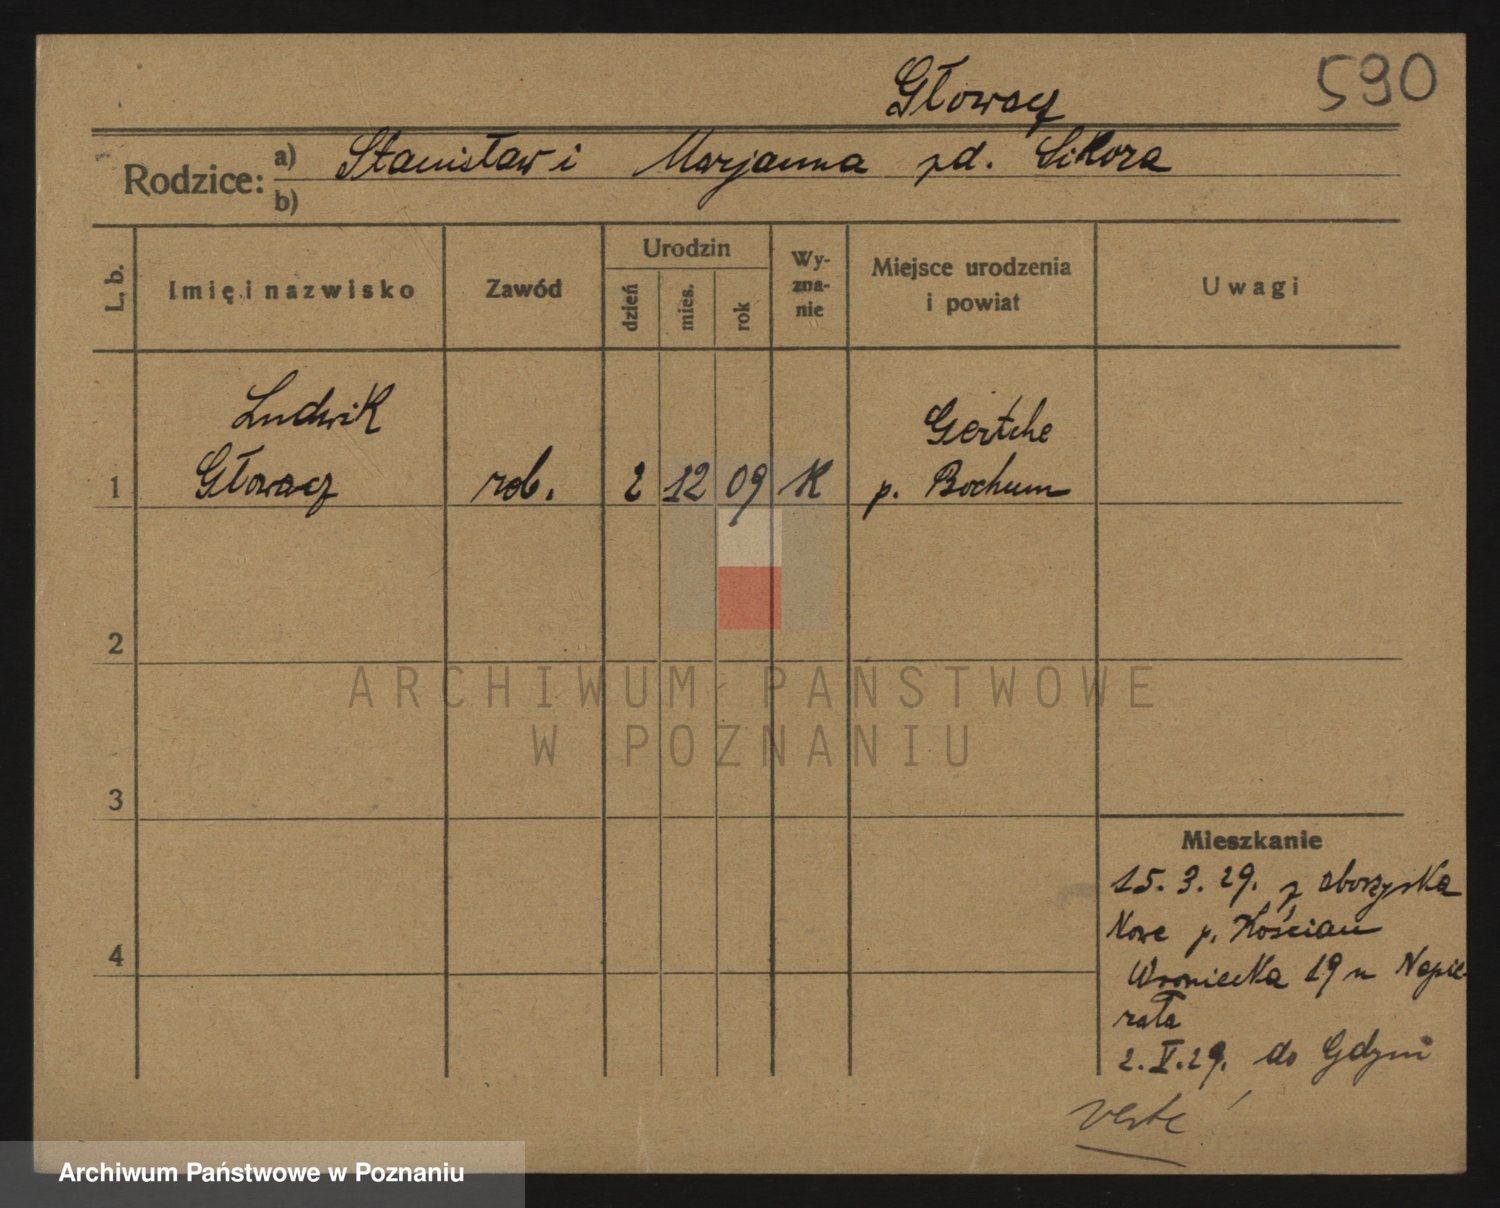 590
Głowacz
Rodzice: a) Stanisław i Marjanna zd. Sikora
b)
L. b. Imię i nazwisko Zawód Urodzin dzień mies. rok Wy-zna-nie Miejsce urodzenia i powiat Uwagi
Ludwik Gertche
1 Głowacz rob. 2 12 09 K p. Bochum
2
ARCHIWUM PAŃSTWOWE
W POZNANIU
3
Mieszkanie
15. 3. 29. z Zborzyska
Nowe p. Kościan
4
Wroniecka 19 u Napie-
rała
2. V. 29. do Gdyni
verte!
Archiwum Państwowe w Poznaniu